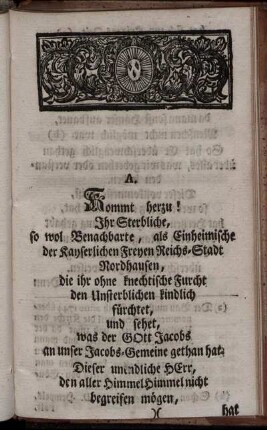 A.
Kommt herzu!
Ihr Sterbliche,
so wol Benachbarte, als Einheimische
der Kayserlichen Freyen Reichs-Stadt
Nordhausen,
die ihr ohne knechtische Furcht
den Unsterblichen kindlich
fürchtet,
und sehet,
was der GOtt Jacobs
an unser Jacobs-Gemeine gethan hat:
Dieser unendliche HErr,
den aller Himmel Himmel nicht
begreifen mögen,
)(
hat